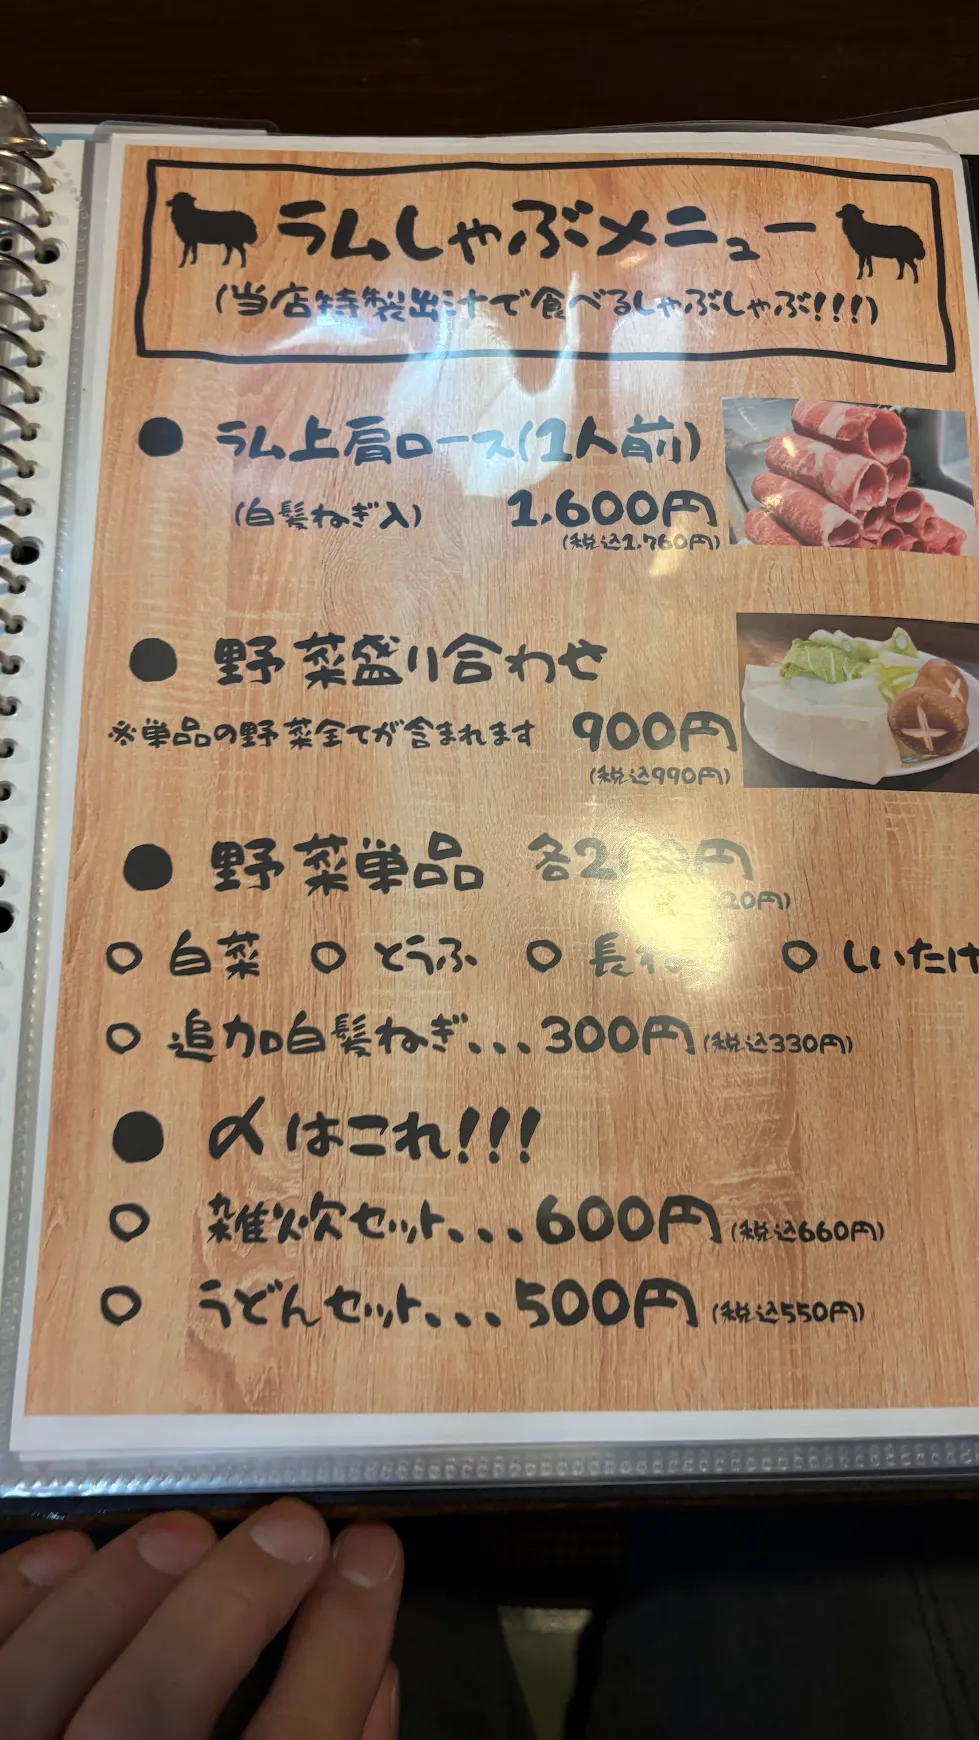 ラムしゃぶメニュー
(当店特製出汁で食べるしゃぶしゃぶ!!!)
● ラム上肩ロース(1人前)
(白髪ねぎ入) 1,600円
(税込1,760円)
● 野菜盛り合わせ
※単品の野菜全てが含まれます 900円
(税込990円)
● 野菜単品 各
20円)
○ 白菜 ○ とうふ ○ 長ね ○ しいたけ
○ 追加白髪ねぎ...300円(税込330円)
● 〆はこれ!!!
○ 雑炊セット...600円(税込660円)
○ うどんセット...500円(税込550円)